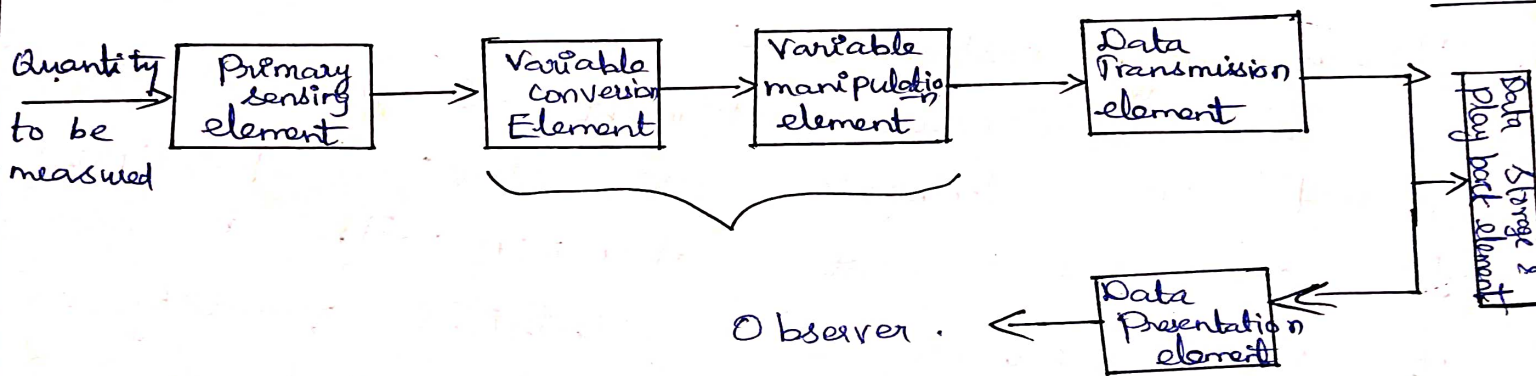 Quantity
to be
measured
Primary
sensing
element
Variable
conversion
Element
Variable
manipulatio
n
element
Data
Transmission
element
Data Storage &
play back element
Data
Presentation
element
Observer.